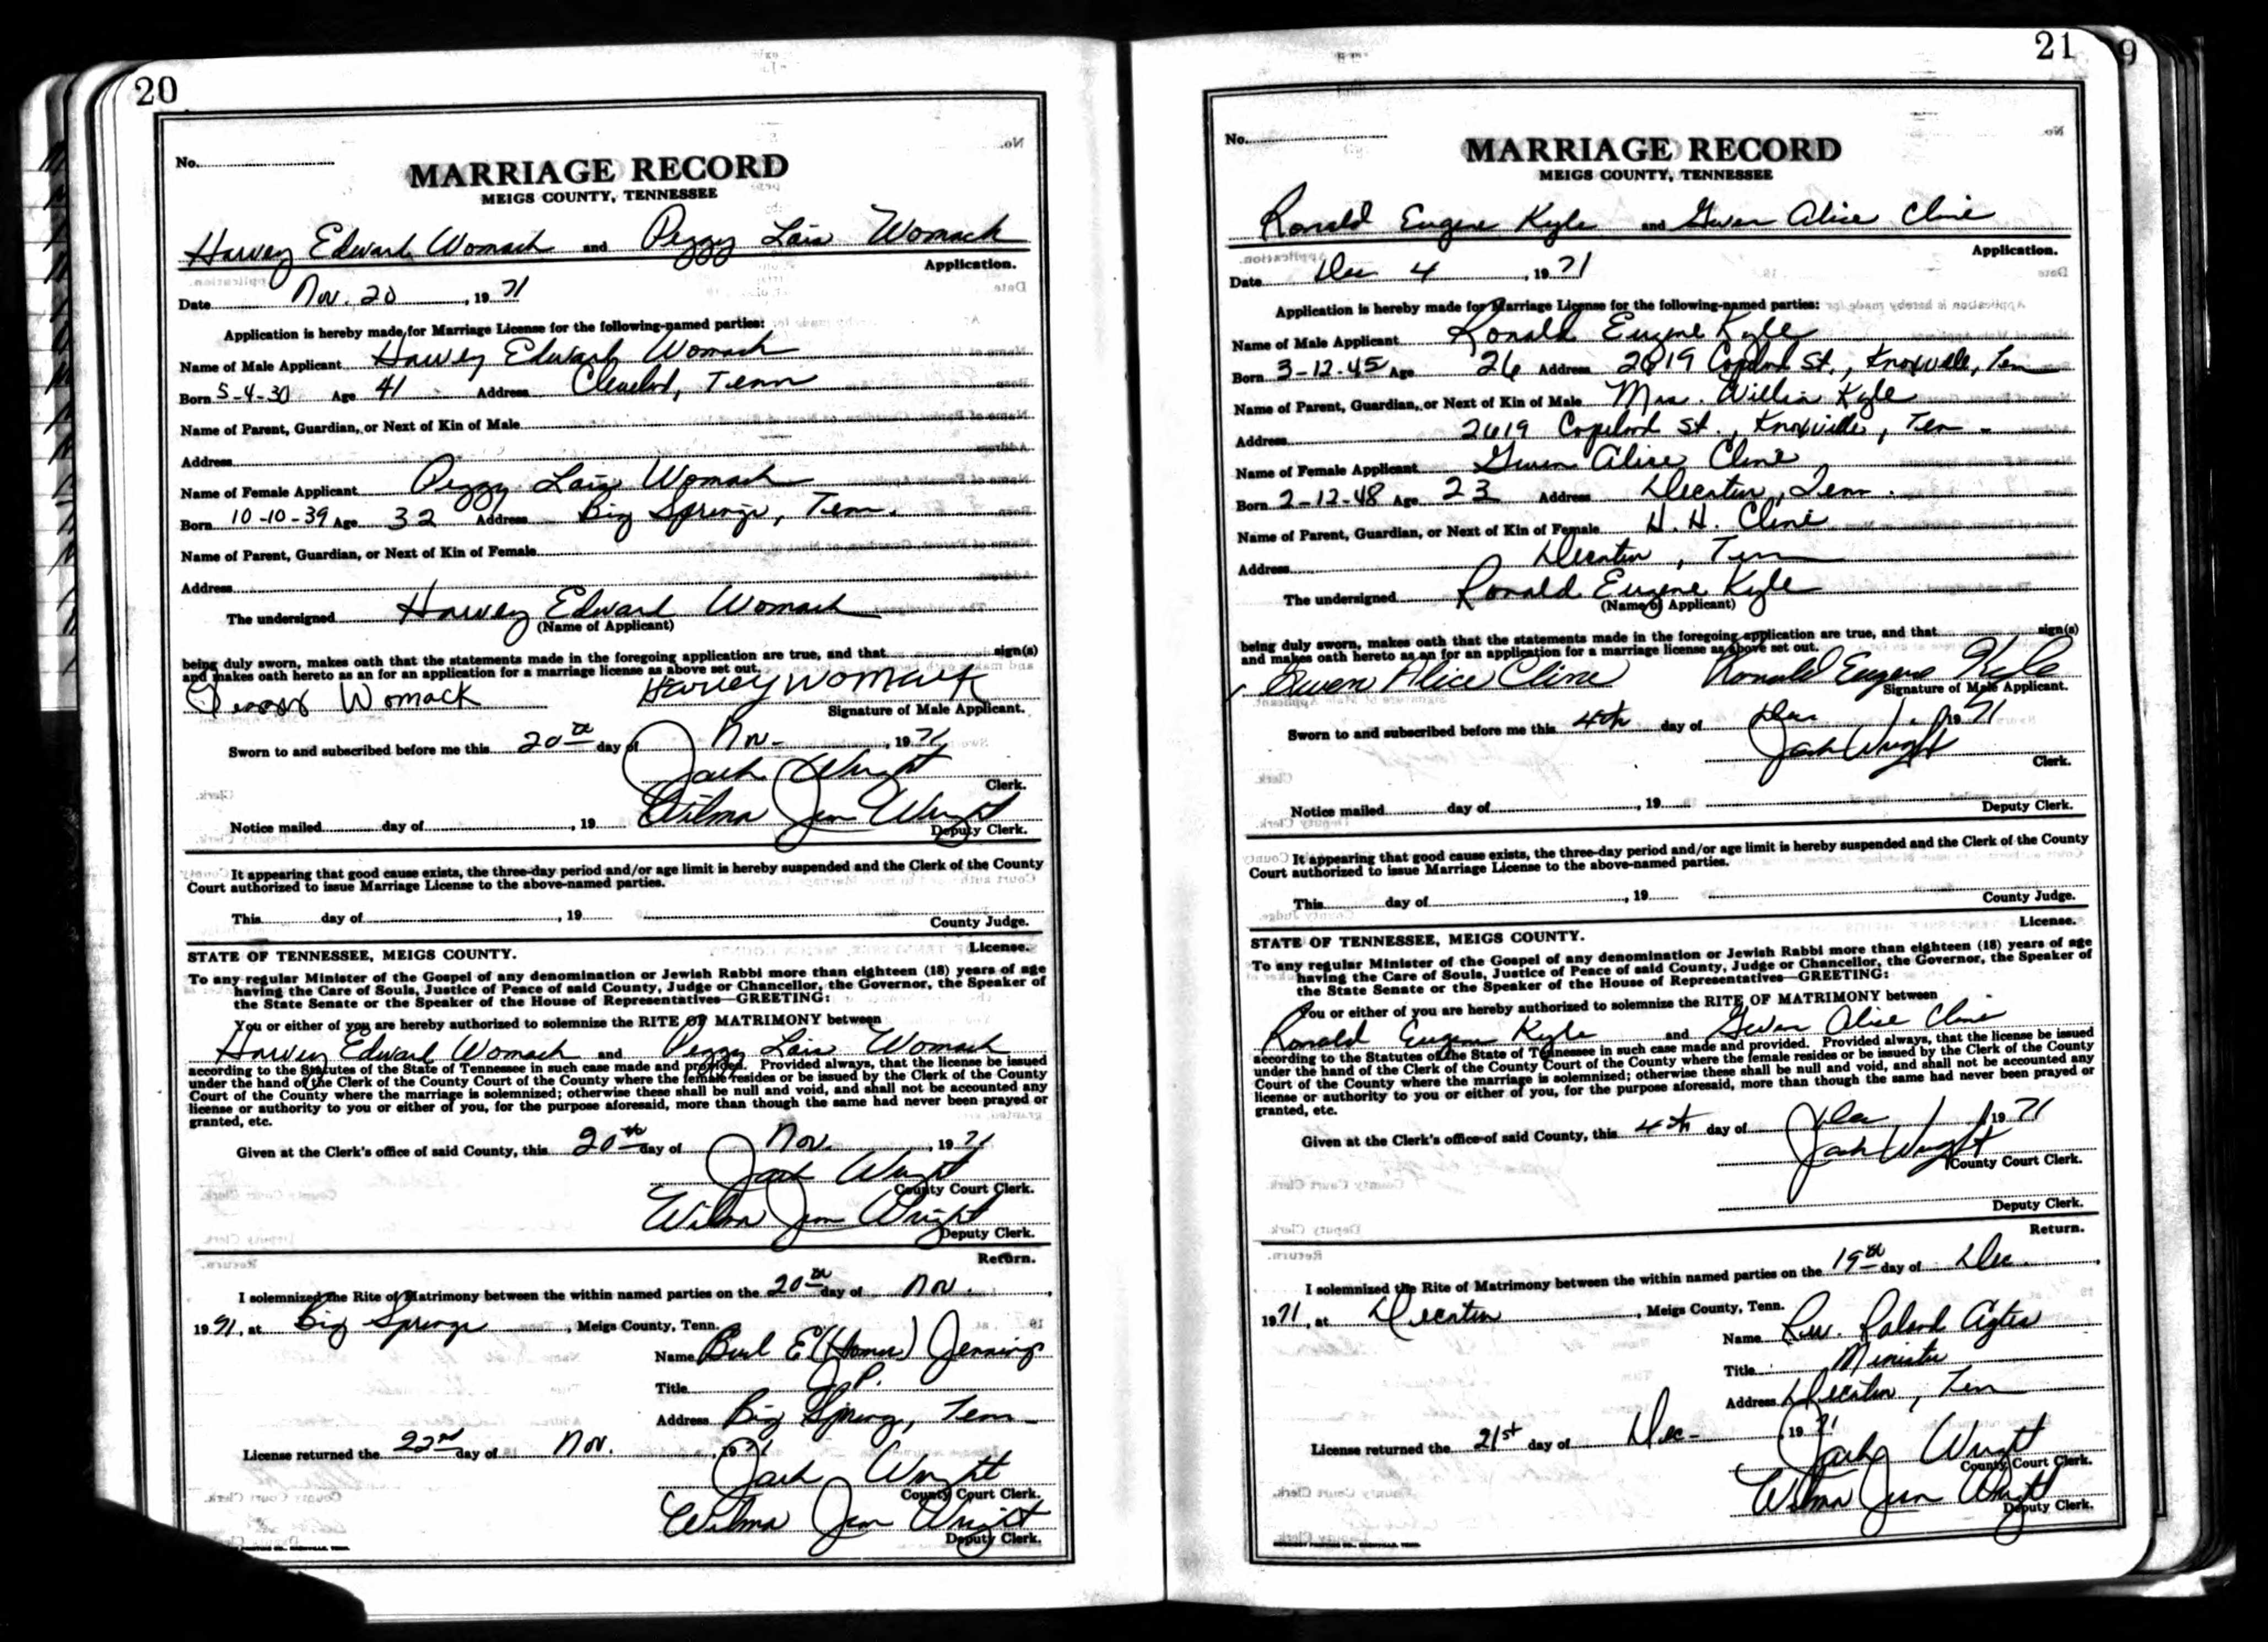 20
No.
MARRIAGE RECORD
MEIGS COUNTY, TENNESSEE
Harvey Edward Womack and Peggy Lois Womack
Application.
Date Nov. 20, 19 71
Application is hereby made for Marriage License for the following-named parties:
Name of Male Applicant Harvey Edward Womack
Born 5-4-30 Age 41 Address Cleveland, Tenn
Name of Parent, Guardian, or Next of Kin of Male
Address
Name of Female Applicant Peggy Lois Womack
Born 10-10-39 Age 32 Address Big Springs, Tenn.
Name of Parent, Guardian, or Next of Kin of Female
Address
The undersigned Harvey Edward Womack
(Name of Applicant)
being duly sworn, makes oath that the statements made in the foregoing application are true, and that sign(s)
and makes oath hereto as an for an application for a marriage license as above set out.
Peggy Womack Harvey Womack
Signature of Male Applicant.
Sworn to and subscribed before me this 20th day of Nov. , 19 71
Jack Wright
Clerk.
Notice mailed day of , 19 Wilma Jean Wright
Deputy Clerk.
It appearing that good cause exists, the three-day period and/or age limit is hereby suspended and the Clerk of the County
Court authorized to issue Marriage License to the above-named parties.
This day of , 19
County Judge.
License.
STATE OF TENNESSEE, MEIGS COUNTY.
To any regular Minister of the Gospel of any denomination or Jewish Rabbi more than eighteen (18) years of age
having the Care of Souls, Justice of Peace of said County, Judge or Chancellor, the Governor, the Speaker of
the State Senate or the Speaker of the House of Representatives—GREETING:
You or either of you are hereby authorized to solemnize the RITE OF MATRIMONY between
Harvey Edward Womack and Peggy Lois Womack
according to the Statutes of the State of Tennessee in such case made and provided. Provided always, that the license be issued
under the hand of the Clerk of the County Court of the County where the female resides or be issued by the Clerk of the County
Court of the County where the marriage is solemnized; otherwise these shall be null and void, and shall not be accounted any
license or authority to you or either of you, for the purpose aforesaid, more than though the same had never been prayed or
granted, etc.
Given at the Clerk's office of said County, this 20th day of Nov. , 19 71
Jack Wright
County Court Clerk.
Wilma Jean Wright
Deputy Clerk.
Return.
I solemnized the Rite of Matrimony between the within named parties on the 20th day of Nov. ,
19 71, at Big Springs , Meigs County, Tenn.
Name Burl E. (Homer) Jennings
Title J. P.
Address Big Spring, Tenn
License returned the 22nd day of Nov. , 19 71
Jack Wright
County Court Clerk.
Wilma Jean Wright
Deputy Clerk.
21
9
No.
MARRIAGE RECORD
MEIGS COUNTY, TENNESSEE
Ronald Eugene Kyle and Gwen Alice Cline
Application.
Date Dec 4 , 19 71
Application is hereby made for Marriage License for the following-named parties:
Name of Male Applicant Ronald Eugene Kyle
Born 3-12-45 Age 26 Address 2619 Copeland St., Knoxville, Ten
Name of Parent, Guardian, or Next of Kin of Male Mrs. Willia Kyle
Address 2619 Copeland St., Knoxville, Ten -
Name of Female Applicant Gwen Alice Cline
Born 2-12-48 Age 23 Address Decatur, Tenn.
Name of Parent, Guardian, or Next of Kin of Female H. H. Cline
Address Decatur, Tenn
The undersigned Ronald Eugene Kyle
(Name of Applicant)
being duly sworn, makes oath that the statements made in the foregoing application are true, and that sign(s)
and makes oath hereto as an for an application for a marriage license as above set out.
Gwen Alice Cline Ronald Eugene Kyle
Signature of Male Applicant.
Sworn to and subscribed before me this 4th day of Dec , 19 71
Jack Wright
Clerk.
Notice mailed day of , 19
Deputy Clerk.
It appearing that good cause exists, the three-day period and/or age limit is hereby suspended and the Clerk of the County
Court authorized to issue Marriage License to the above-named parties.
This day of , 19
County Judge.
License.
STATE OF TENNESSEE, MEIGS COUNTY.
To any regular Minister of the Gospel of any denomination or Jewish Rabbi more than eighteen (18) years of age
having the Care of Souls, Justice of Peace of said County, Judge or Chancellor, the Governor, the Speaker of
the State Senate or the Speaker of the House of Representatives—GREETING:
You or either of you are hereby authorized to solemnize the RITE OF MATRIMONY between
Ronald Eugene Kyle and Gwen Alice Cline
according to the Statutes of the State of Tennessee in such case made and provided. Provided always, that the license be issued
under the hand of the Clerk of the County Court of the County where the female resides or be issued by the Clerk of the County
Court of the County where the marriage is solemnized; otherwise these shall be null and void, and shall not be accounted any
license or authority to you or either of you, for the purpose aforesaid, more than though the same had never been prayed or
granted, etc.
Given at the Clerk's office of said County, this 4th day of Dec , 19 71
Jack Wright
County Court Clerk.
Deputy Clerk.
Return.
I solemnized the Rite of Matrimony between the within named parties on the 19th day of Dec. ,
19 71, at Decatur , Meigs County, Tenn.
Name Rev. Roland
Title Minister
Address Decatur, Ten
License returned the 21st day of Dec- , 19 71
Jack Wright
County Court Clerk.
Wilma Jean Wright
Deputy Clerk.